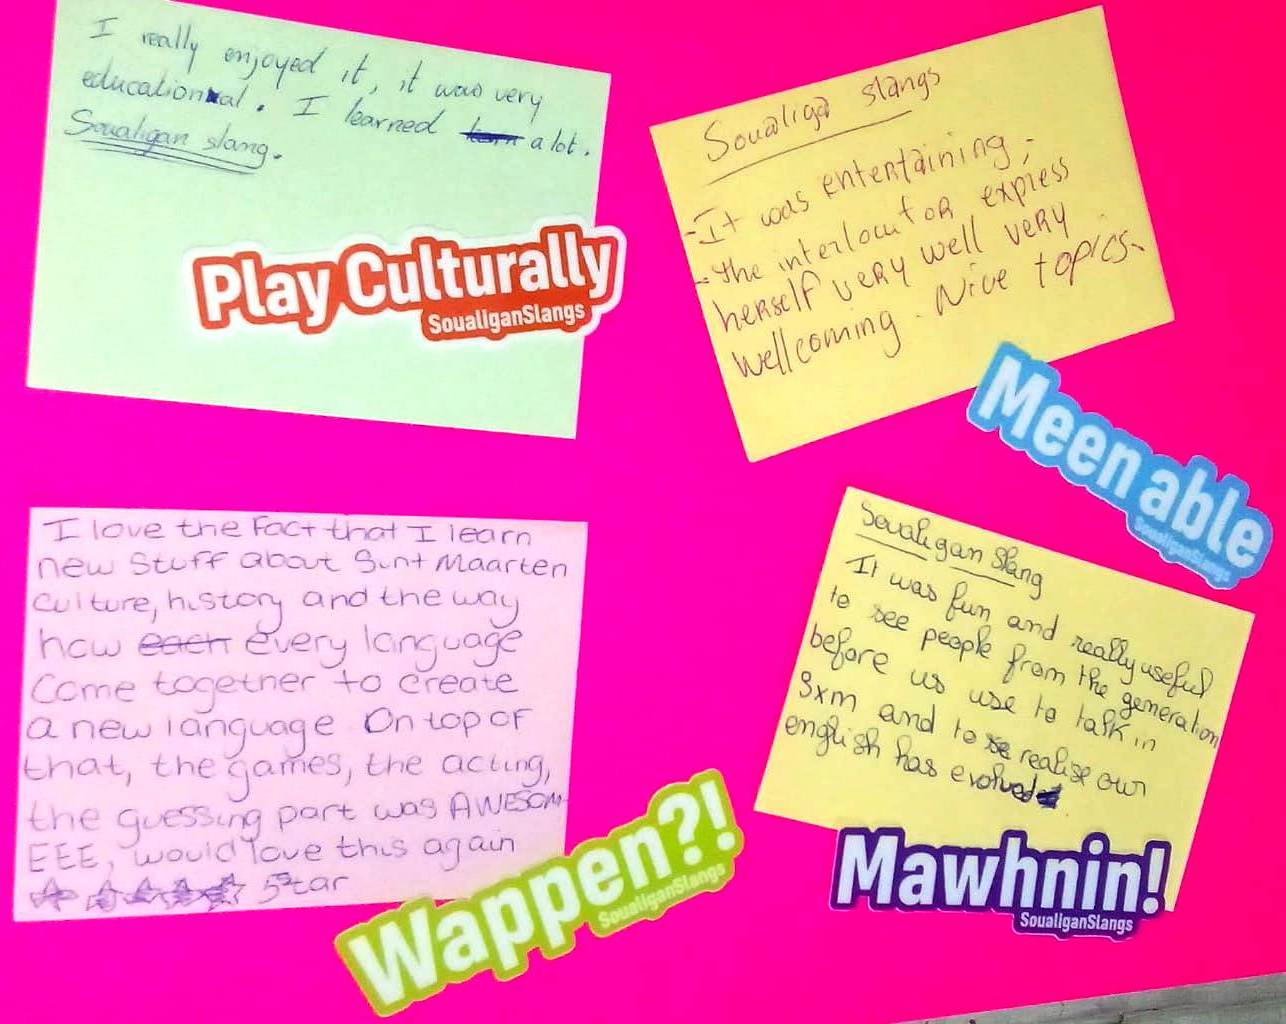 I really enjoyed it, it was very
educational. I learned a lot.
Soualigan slang.
Play Culturally
SoualiganSlangs
Soualiga slangs
- It was entertaining,-
- the interlocutor express
herself very well very
wellcoming. Nice topics-
Meen able
SoualiganSlangs
I love the Fact that I learn
new Stuff about Sint Maarten
culture, history and the way
how each every language
Come together to create
a new language. On top of
that, the games, the acting,
the guessing part was AWESOM
EEE, would love this again
5 star
Wappen?!
SoualiganSlangs
Soualigan Slang
It was fun and really useful
to see people from the generation
before us use to talk in
Sxm and to realise our
english has evolved
Mawhnin!
SoualiganSlangs